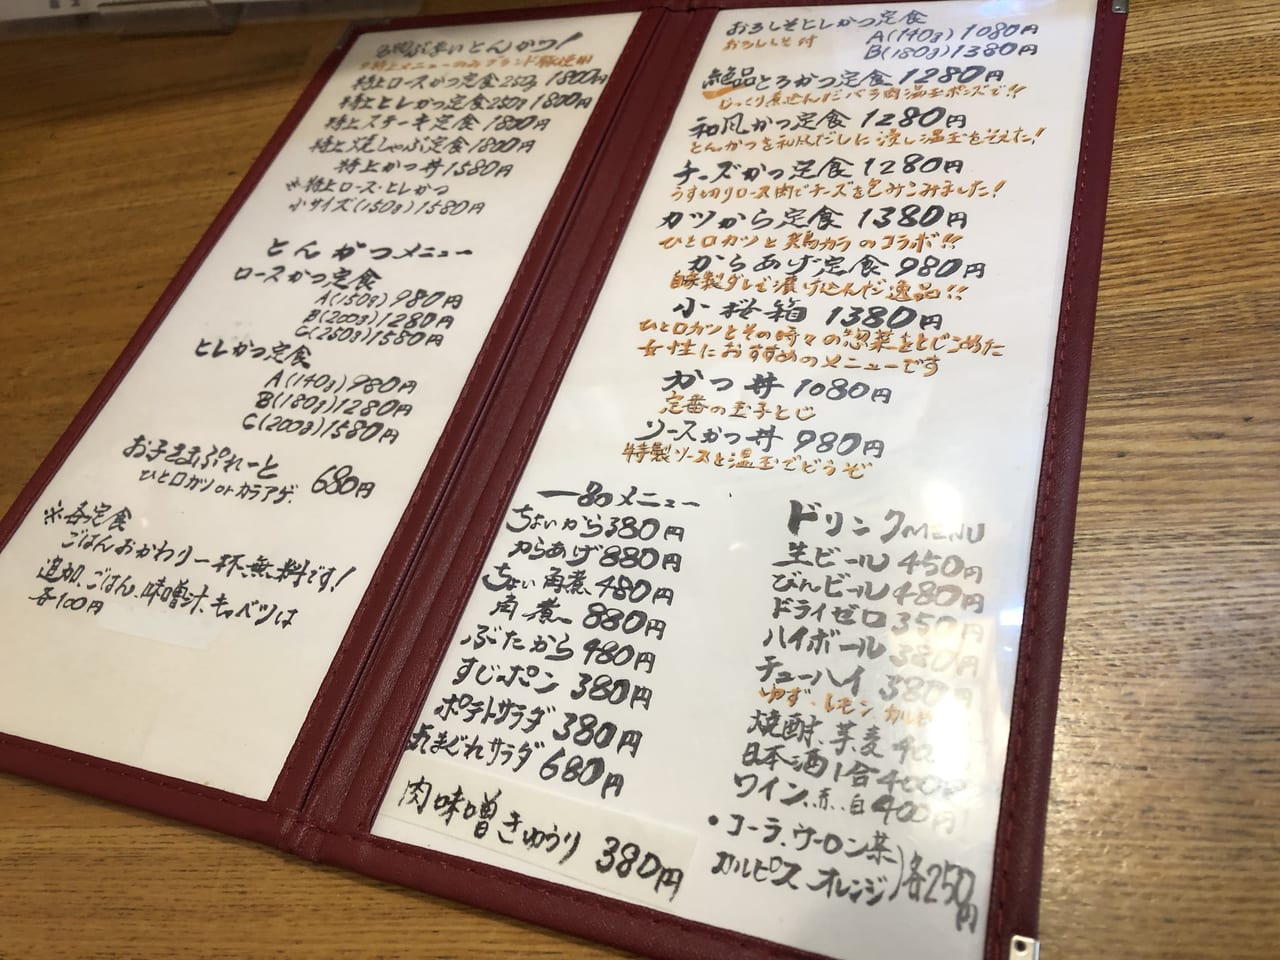 とんかつ!
※特上メニューのみブランド豚使用
特上ロースかつ定食250g 1800円
特上ヒレかつ定食250g 1800円
特上ステーキ定食 1800円
特上焼しゃぶ定食 1800円
特上かつ丼 1580円
※特上ロース・ヒレかつ
小サイズ(150g) 1580円
とんかつメニュー
ロースかつ定食
A(150g) 980円
B(200g) 1280円
C(250g) 1580円
ヒレかつ定食
A(140g) 980円
B(180g) 1280円
C(200g) 1580円
お子さまぷれーと 680円
ひと口カツorカラアゲ
※各定食
ごはんおかわり一杯無料です!
追加、ごはん、味噌汁、キャベツは
各100円
おろしそヒレかつ定食
おろししそ付
A(140g) 1080円
B(180g) 1380円
絶品とろかつ定食 1280円
じっくり煮込んだバラ肉温玉ポンズで!!
和風かつ定食 1280円
とんかつを和風だしに浸し温玉をそえた!
チーズかつ定食 1280円
うす切りロース肉でチーズを包みこみました!
カツから定食 1380円
ひと口カツと鶏カラのコラボ!!
からあげ定食 980円
自家製ダレで漬け込んだ逸品!!
小桜箱 1380円
ひと口カツとその時々の惣菜をとじこめた
女性におすすめのメニューです
かつ丼 1080円
定番の玉子とじ
ソースかつ丼 980円
特製ソースと温玉でどうぞ
一品メニュー
ちょいから 380円
からあげ 880円
ちょい角煮 480円
角煮 880円
ぶたから 980円
すじポン 380円
ポテトサラダ 380円
きまぐれサラダ 680円
肉味噌きゅうり 380円
ドリンクMENU
生ビール 450円
びんビール 480円
ドライゼロ 350円
ハイボール 380円
チューハイ 380円
ゆず・レモン
焼酎、芋、麦
日本酒1合 400円
ワイン、赤、白 400円
・コーラ、ウーロン茶
カルピス オレンジ)各250円